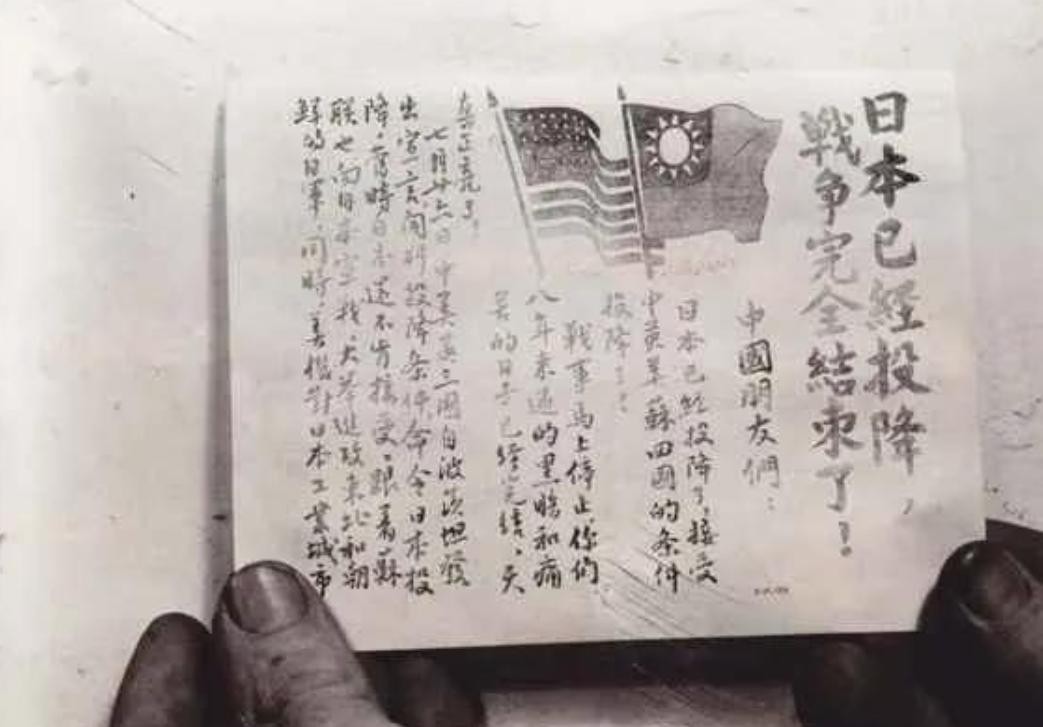 日本已經投降，
戰争完全結束了！
中國朋友們：
日本已經投降了，接受
中英美蘇四国的条件
投降了！
戰事馬上停止，你們
八年来過的黑暗和痛
苦的日子已經完結，天
在正亮了。
七月廿六日，中美英三國自波茨坦發
出宣言，開列投降条件，命令日本投
降，當時日本還不肯接受，跟着蘇
联也向日本宣战，大举進攻東北和朝
鮮的日軍，同時，美機對日本工業城市